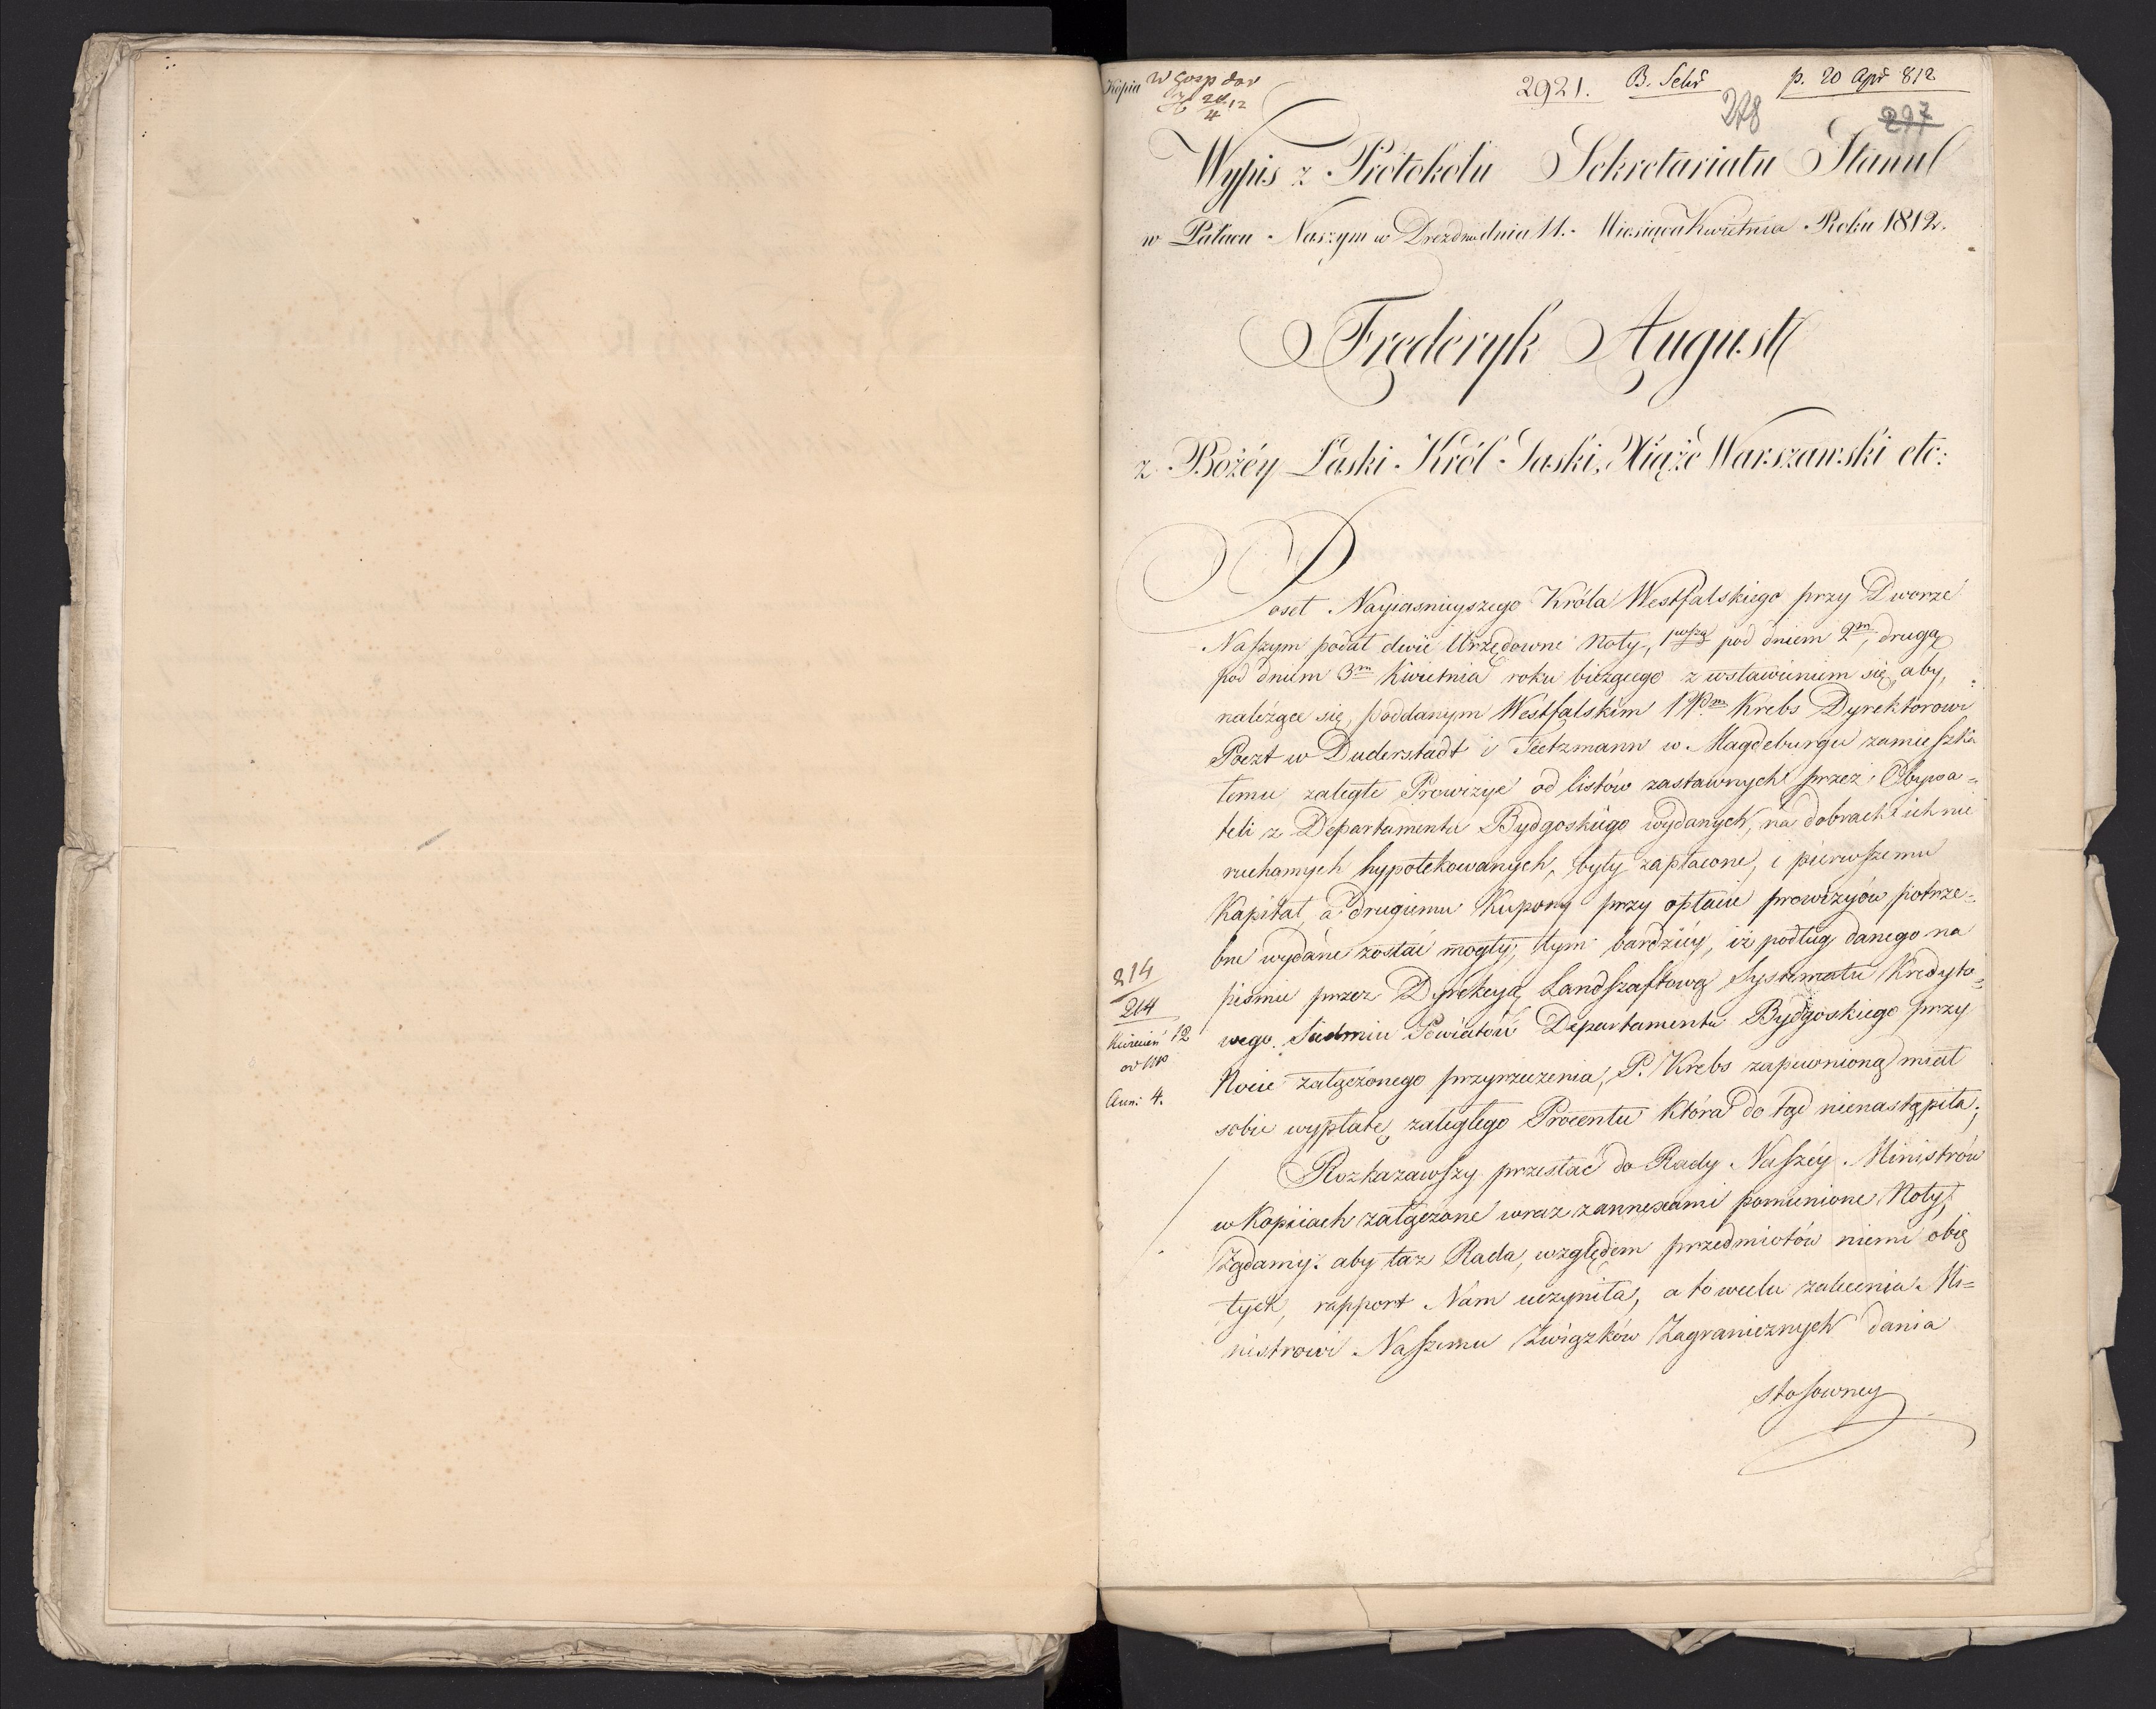 Kopia W Gosp dar
20/4 12
2921. B. Sekr p. 20 Apr 812
278 297
Wypis z Protokołu Sekretariatu Stanu
w Pałacu Naszym w Dreznie dnia 11. Miesiąca Kwietnia Roku 1812.
Frederyk August
z Bożéy Łaski Król Saski, Xiąże Warszawski etc:
Poseł Nayiasnieyszego Króla Westfalskiego przy Dworze
Naszym podał dwie Urzędowne Noty, 1wszą pod dniem 2m, drugą
pod dniem 3m Kwietnia roku bieżącego z wstawieniem się, aby,
należące się, poddanym Westfalskim PPm Krebs Dyrektorowi
Poczt w Duderstadt i Tietzmann w Magdeburgu zamieszka
łemu zaległe Prowizye od listów zastawnych przez Obywa=
teli z Departamentu Bydgoskiego wydanych, na dobrach ich nie
ruchomych hypotekowanych, były zapłacone, i pierwszemu
Kapitał, a drugiemu Kupony przy opłacie prowizyów potrze=
bne wydane zostać mogły; tym bardziéy, iż podług danego na
piśmie przez Dyrekcyą Landszaftową Systematu Kredyto=
wego Siedmiu Powiatów Departamentu Bydgoskiego przy
Nocie załączonego przyrzeczenia, P. Krebs zapewnioną miał
sobie wypłatę zaległego Procentu która do tąd nienastąpiła;
Rozkazawszy przesłać do Rady Naszéy Ministrów
w Kopiiach załączone wraz z annexami pomienione Noty,
Żądamy: aby taż Rada, względem przedmiotów niemi obię
tych, rapport Nam uczyniła, a to w celu zalecenia Mi=
nistrowi Naszemu Związków Zagranicznych dania
stosowney
214
Kwiecień 12
Ann: 4.